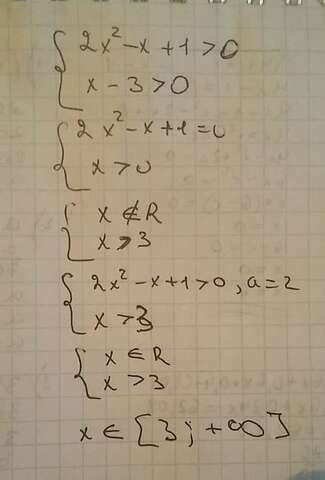 2x² - x + 1 > 0
x - 3 > 0
2x² - x + 1 = 0
x > 0
x ∉ R
x > 3
2x² - x + 1 > 0, a = 2
x > 3
x ∈ R
x > 3
x ∈ [3; +∞]